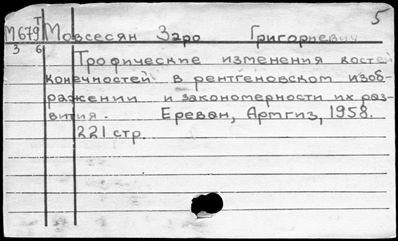 5
Т
М679 Мовсесян Заро Григорьевич
3 6
Трофические изменения костей
конечностей в рентгеновском изоб-
ражении и закономерности их раз-
вития. Ереван, Армгиз, 1958.
221 стр.